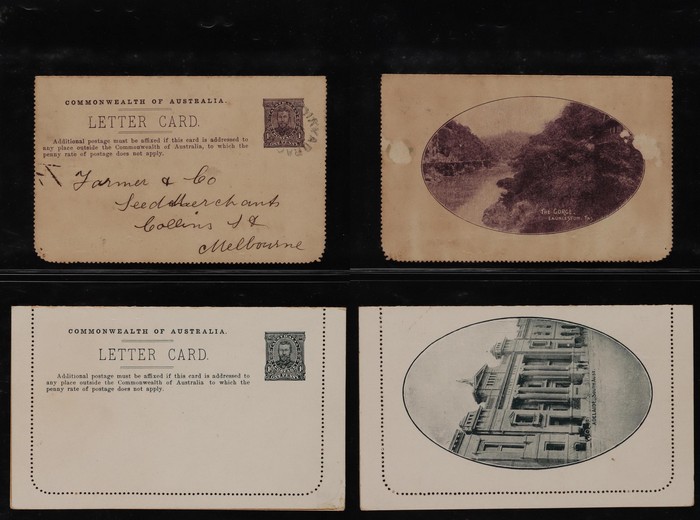 COMMONWEALTH OF AUSTRALIA.
LETTER CARD.
Additional postage must be affixed if this card is addressed to
any place outside the Commonwealth of Australia, to which the
penny rate of postage does not apply.
Farmer & Co
Seed Merchants
Collins St
Melbourne
THE GORGE,
LAUNCESTON, TAS.
COMMONWEALTH OF AUSTRALIA.
LETTER CARD.
Additional postage must be affixed if this card is addressed to
any place outside the Commonwealth of Australia to which the
penny rate of postage does not apply.
ONE PENNY